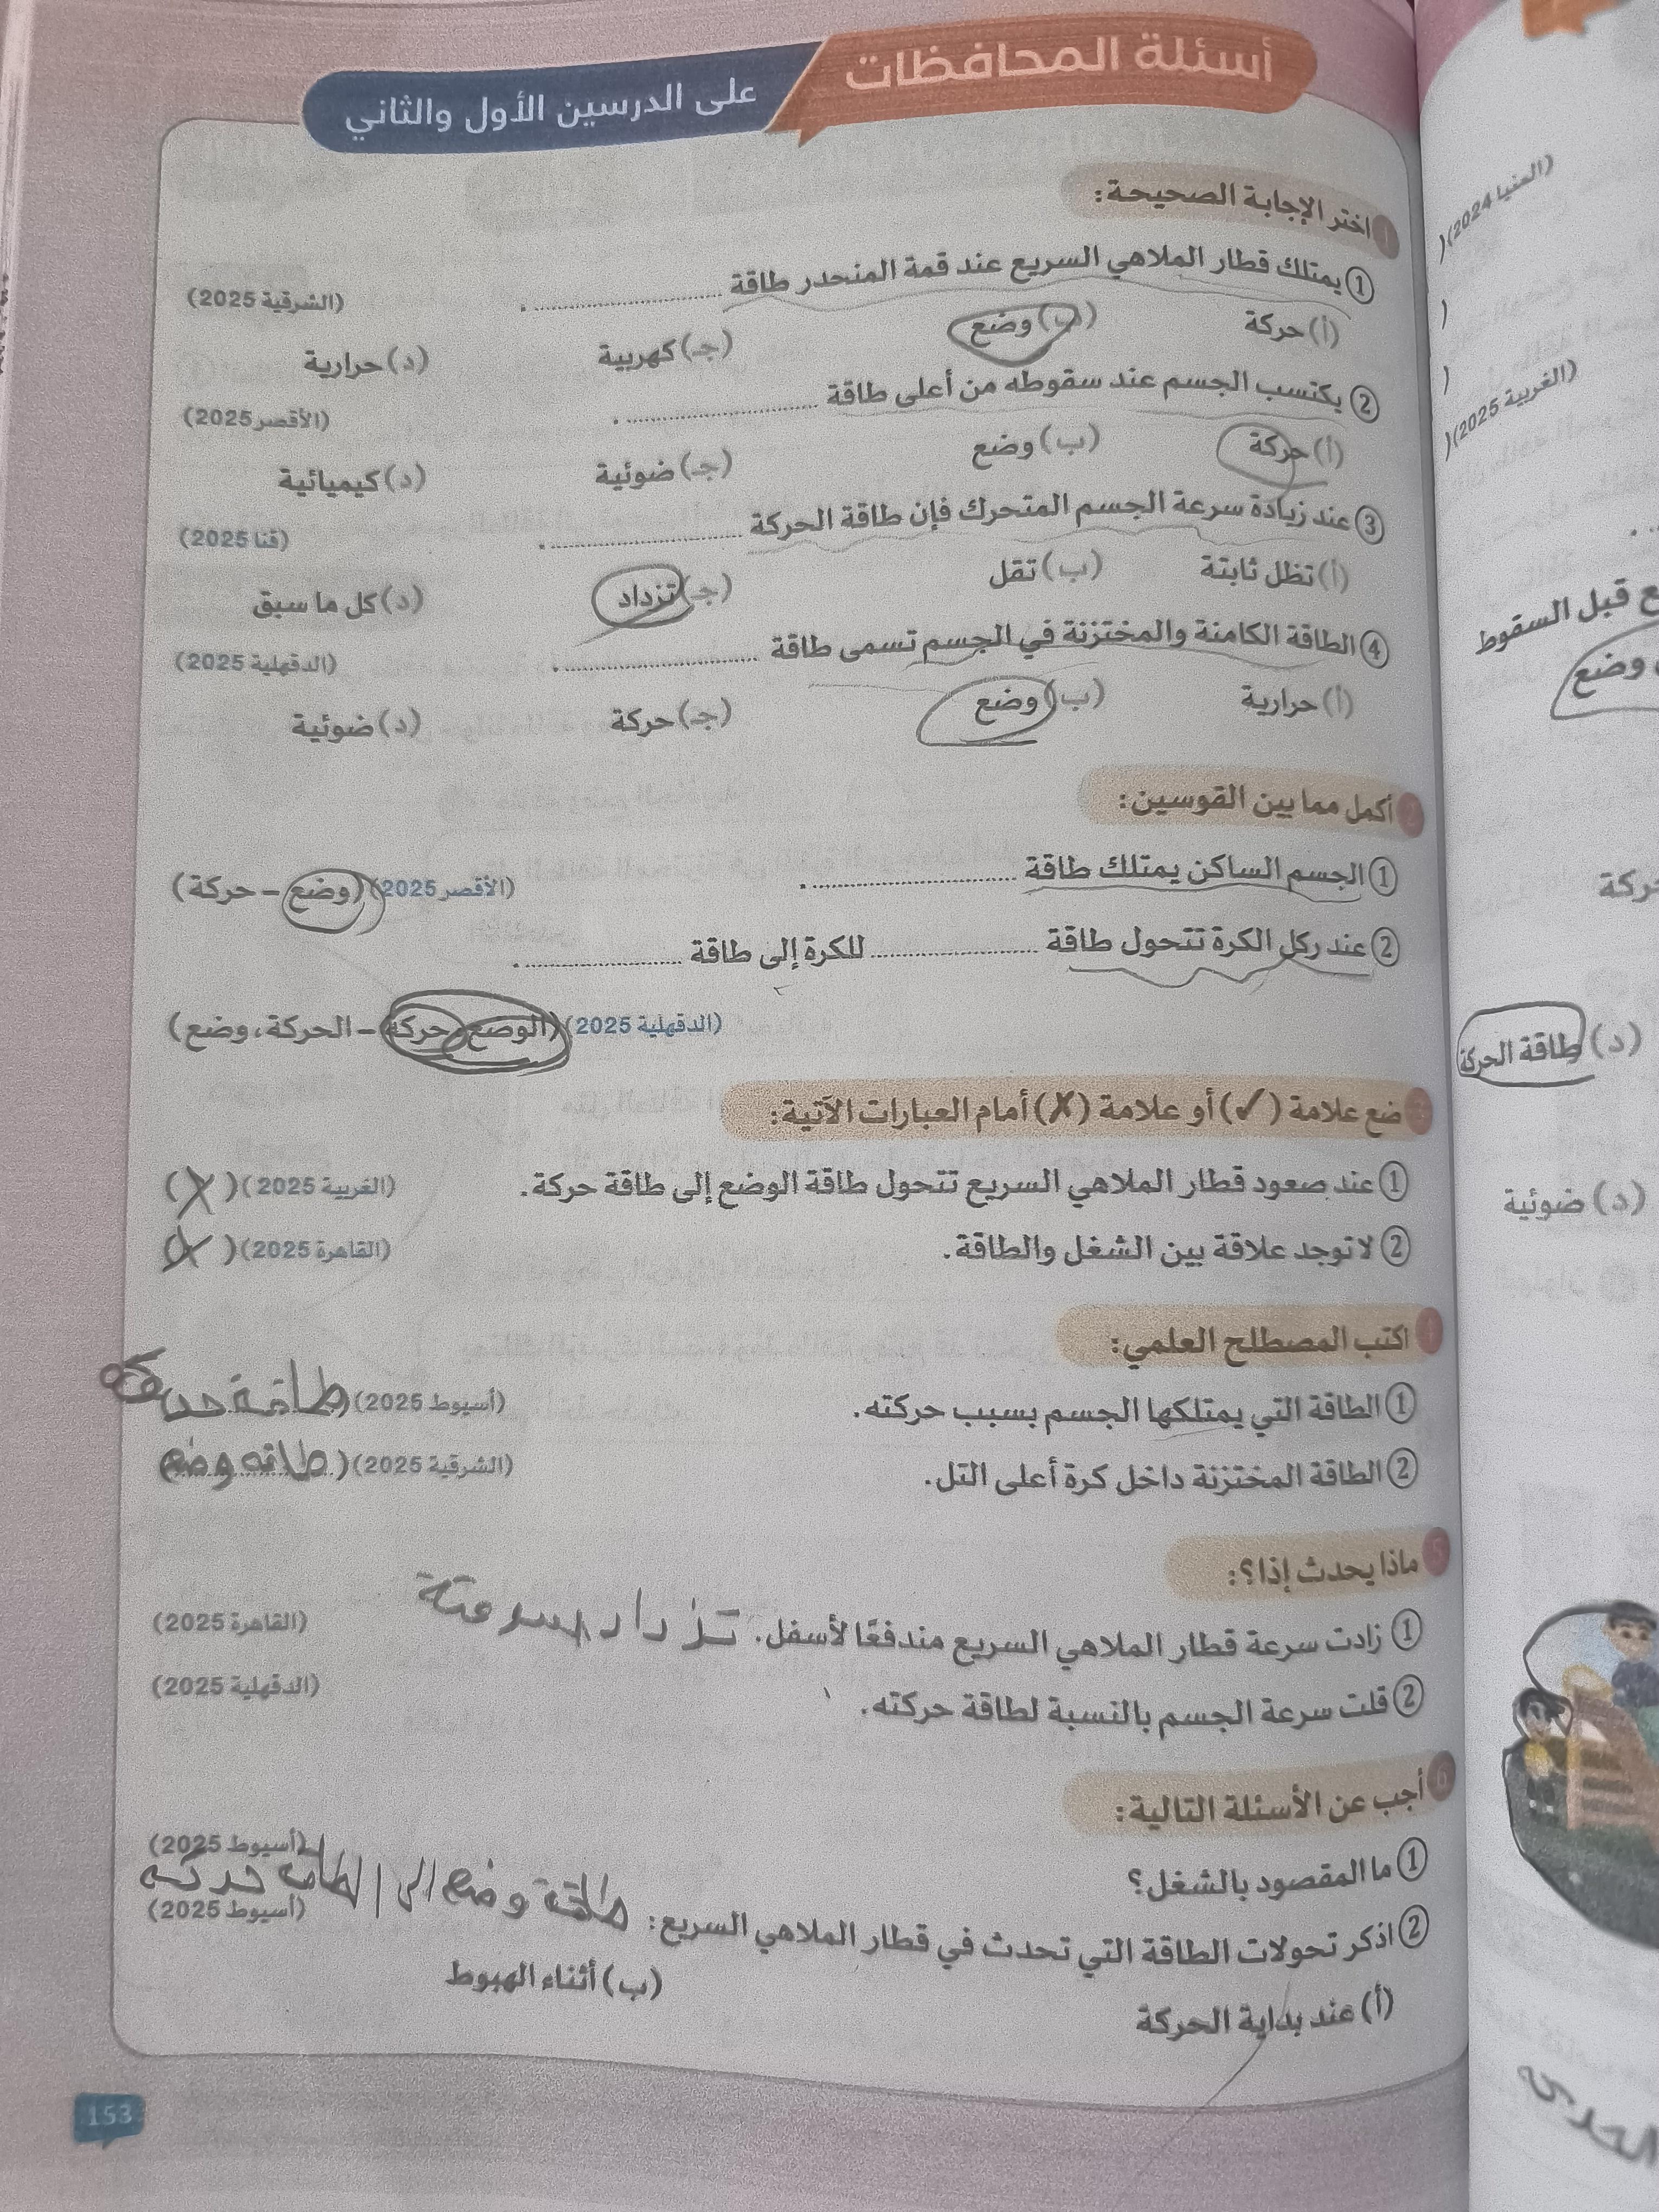 أسئلة المحافظات على الدرسين الأول والثاني
1 اختر الإجابة الصحيحة:
① يمتلك قطار الملاهي السريع عند قمة المنحدر طاقة .................... . (الشرقية 2025)
(أ) حركة (ب) وضع (جـ) كهربية (د) حرارية
② يكتسب الجسم عند سقوطه من أعلى طاقة .................... . (الأقصر 2025)
(أ) حركة (ب) وضع (جـ) ضوئية (د) كيميائية
③ عند زيادة سرعة الجسم المتحرك فإن طاقة الحركة .................... . (قنا 2025)
(أ) تظل ثابتة (ب) تقل (جـ) تزداد (د) كل ما سبق
④ الطاقة الكامنة والمختزنة في الجسم تسمى طاقة .................... . (الدقهلية 2025)
(أ) حرارية (ب) وضع (جـ) حركة (د) ضوئية
أكمل مما بين القوسين:
① الجسم الساكن يمتلك طاقة .................... . (الأقصر 2025) (وضع – حركة)
② عند ركل الكرة تتحول طاقة .................... للكرة إلى طاقة .................... .
(الدقهلية 2025) (الوضع، حركة – الحركة، وضع)
ضع علامة (✓) أو علامة (✗) أمام العبارات الآتية:
① عند صعود قطار الملاهي السريع تتحول طاقة الوضع إلى طاقة حركة. (الغربية 2025) (X)
② لا توجد علاقة بين الشغل والطاقة. (القاهرة 2025) (X)
اكتب المصطلح العلمي:
① الطاقة التي يمتلكها الجسم بسبب حركته. (أسيوط 2025) (طاقة حركة)
② الطاقة المختزنة داخل كرة أعلى التل. (الشرقية 2025) (طاقه وضع)
5 ماذا يحدث إذا؟:
① زادت سرعة قطار الملاهي السريع مندفعًا لأسفل. تزداد سرعتة (القاهرة 2025)
② قلت سرعة الجسم بالنسبة لطاقة حركته. (الدقهلية 2025)
6 أجب عن الأسئلة التالية:
① ما المقصود بالشغل؟ (أسيوط 2025)
② اذكر تحولات الطاقة التي تحدث في قطار الملاهي السريع: طاقة وضع الى الطاقه حركه (أسيوط 2025)
(أ) عند بداية الحركة (ب) أثناء الهبوط
153
(المنيا 2024) (
(الغربية 2025) (
قبل السقوط
وضع
(د) طاقة الحركة
(د) ضوئية